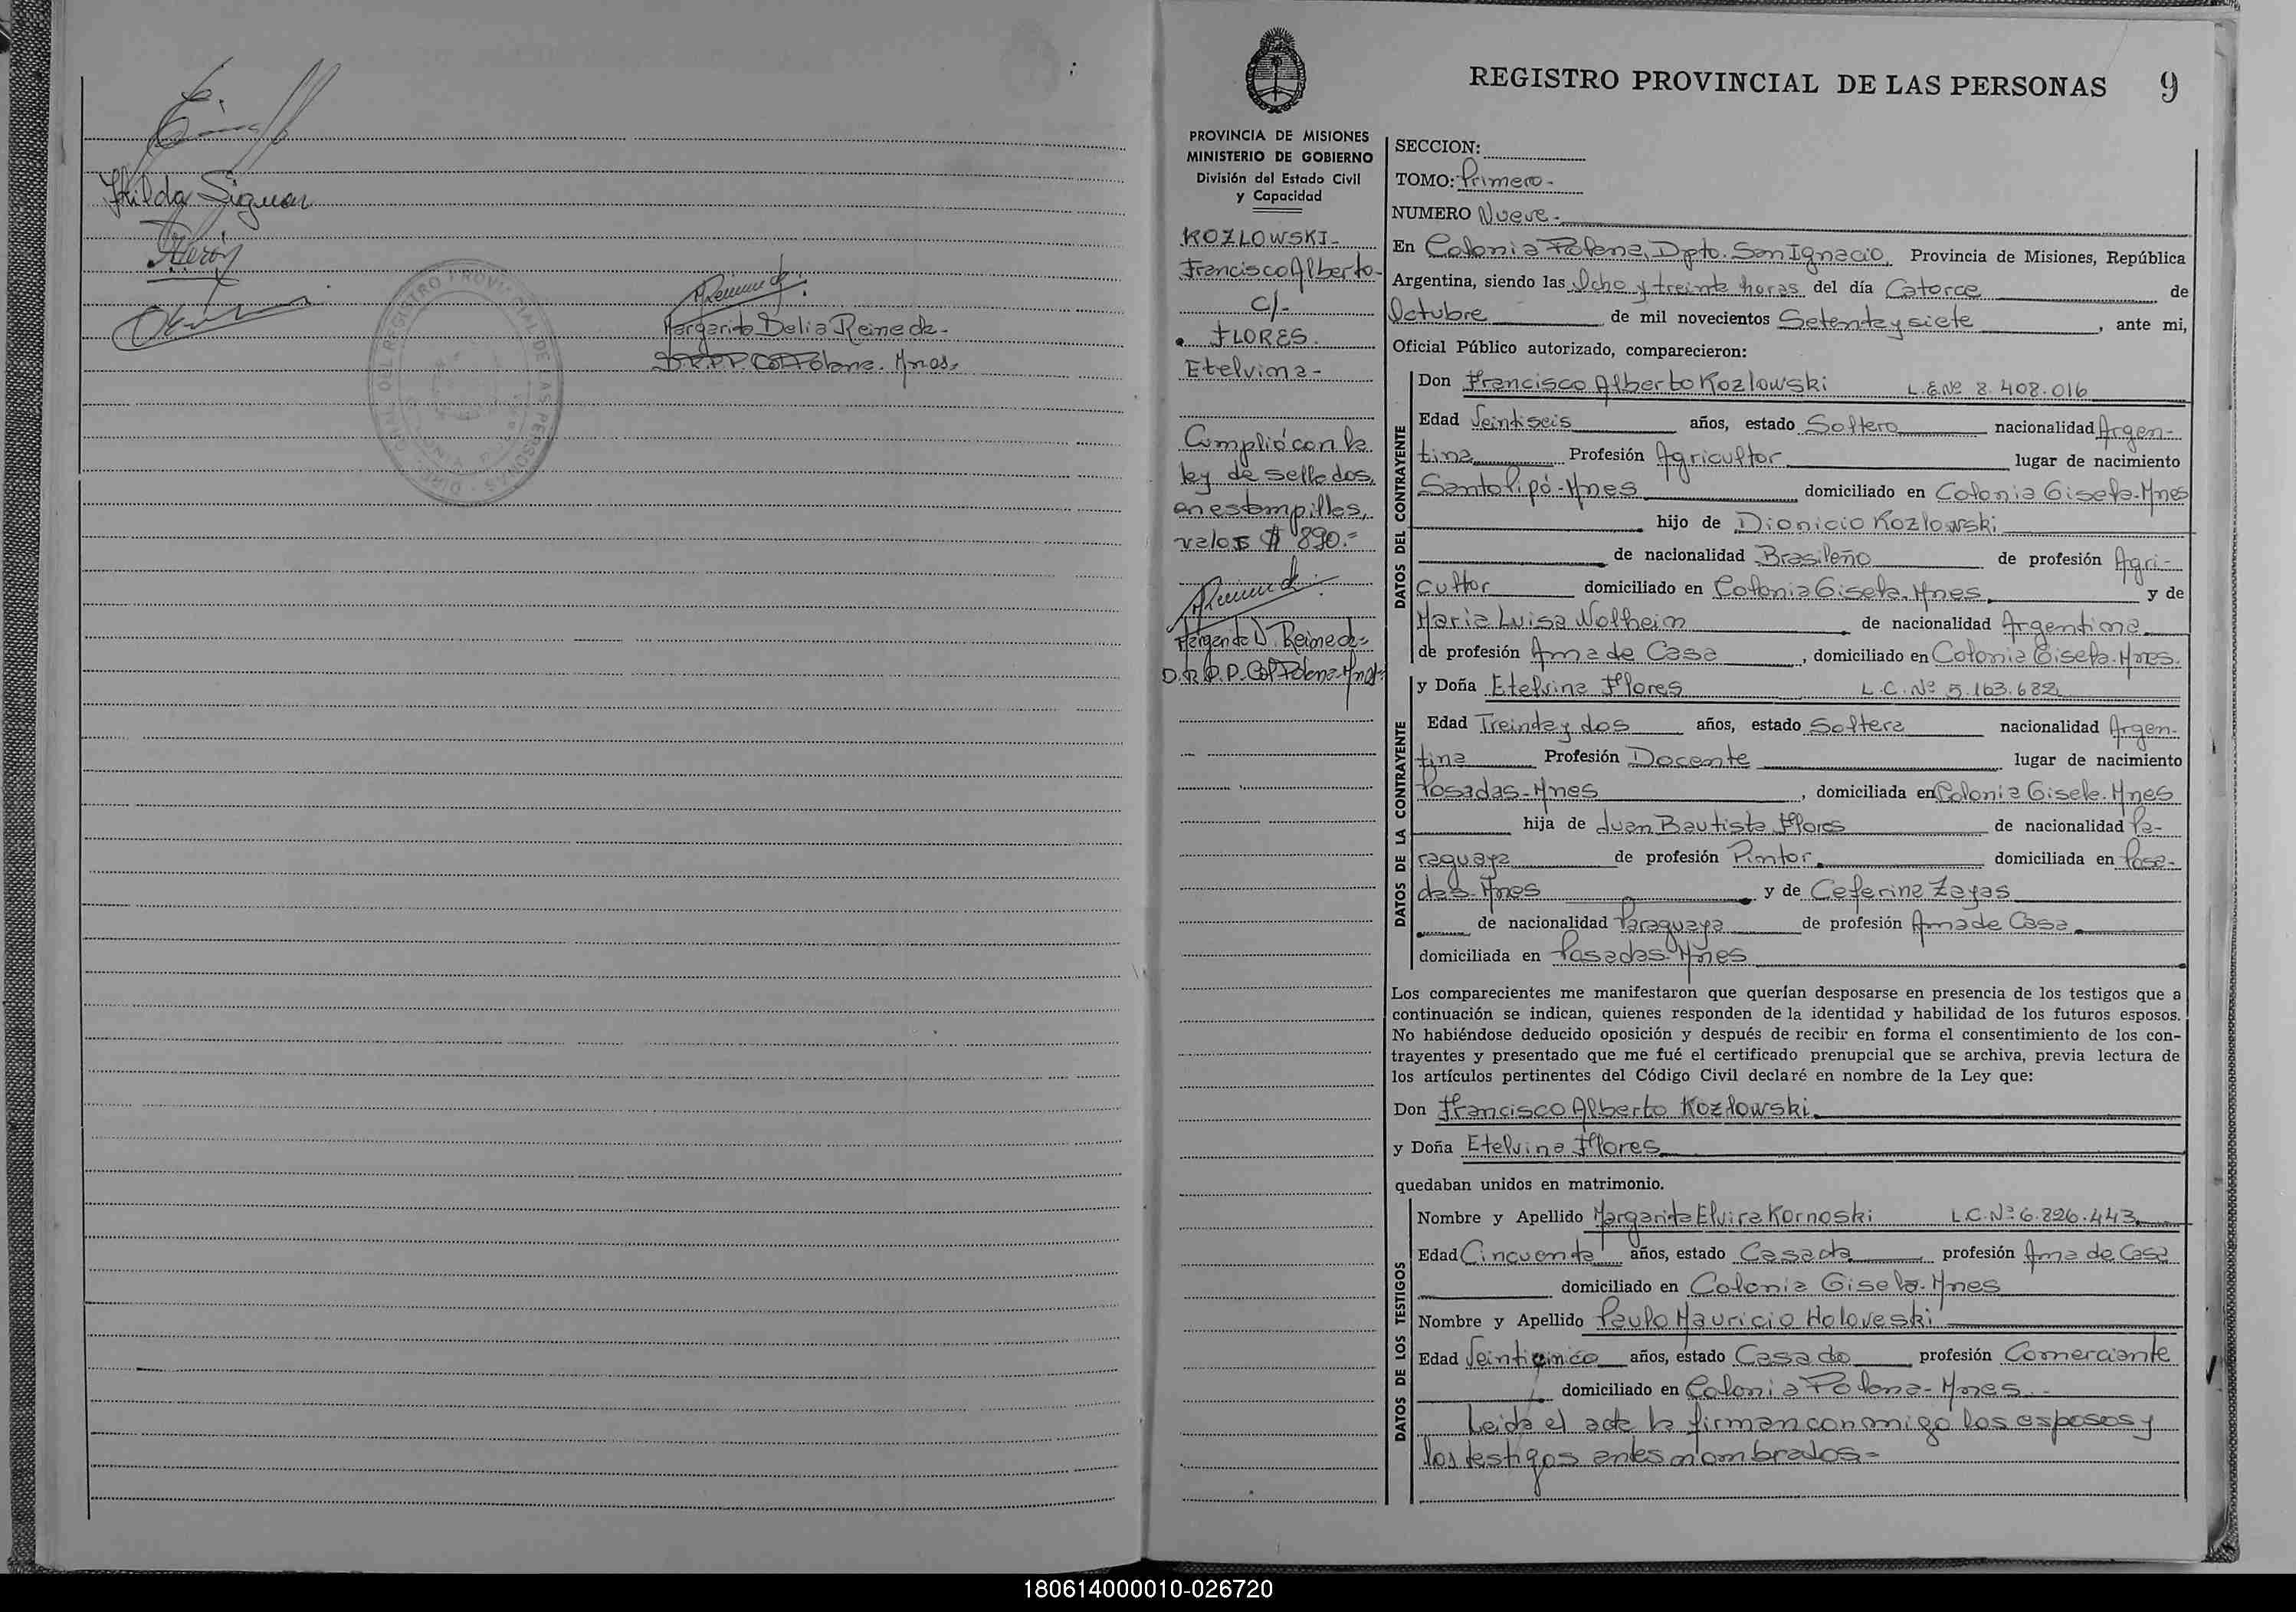 Hilda Siguer
Margarita Delia Reineck-
D.R.P.P. Col. Polana. Mnes.
REGISTRO PROVINCIAL DE LAS PERSONAS 9
PROVINCIA DE MISIONES
MINISTERIO DE GOBIERNO
División del Estado Civil
y Capacidad
KOZLOWSKI-
Francisco Alberto-
C/-
FLORES.
Etelvina-
Cumplió con la
ley de sellados,
en estampillas,
valor $ 890.-
Margarita D. Reineck-
D.R.P.P. Col Polana-Mnes-
SECCION:
TOMO: Primero-
NUMERO Nueve.-
En Colonia Polana, Dpto. San Ignacio, Provincia de Misiones, República
Argentina, siendo las Ocho y treinta horas del día Catorce de
Octubre de mil novecientos Setenta y siete, ante mi,
Oficial Público autorizado, comparecieron:
DATOS DEL CONTRAYENTE
Don Francisco Alberto Kozlowski L.E.Nº 8.408.016
Edad Veintiseis años, estado Soltero nacionalidad Argen-
tina Profesión Agricultor lugar de nacimiento
Santo Pipó-Mnes domiciliado en Colonia Gisela-Mnes
hijo de Dionicio Kozlowski
de nacionalidad Brasileño de profesión Agri-
cultor domiciliado en Colonia Gisela-Mnes. y de
Maria Luisa Wolheim de nacionalidad Argentina
de profesión Ama de Casa, domiciliado en Colonia Gisela-Mnes.
DATOS DE LA CONTRAYENTE
y Doña Etelvina Flores L.C.Nº 5.163.682
Edad Treinta y dos años, estado Soltera nacionalidad Argen-
tina Profesión Docente lugar de nacimiento
Posadas-Mnes, domiciliada en Colonia Gisela-Mnes
hija de Juan Bautista Flores de nacionalidad Pa-
raguaya de profesión Pintor domiciliada en Posa-
das-Mnes y de Ceferina Zayas
de nacionalidad Paraguaya de profesión Ama de Casa
domiciliada en Posadas-Mnes
Los comparecientes me manifestaron que querían desposarse en presencia de los testigos que a
continuación se indican, quienes responden de la identidad y habilidad de los futuros esposos.
No habiéndose deducido oposición y después de recibir en forma el consentimiento de los con-
trayentes y presentado que me fué el certificado prenupcial que se archiva, previa lectura de
los artículos pertinentes del Código Civil declaré en nombre de la Ley que:
Don Francisco Alberto Kozlowski
y Doña Etelvina Flores
quedaban unidos en matrimonio.
DATOS DE LOS TESTIGOS
Nombre y Apellido Margarita Elvira Kornoski L.C.Nº 6.826.443
Edad Cincuenta años, estado Casada profesión Ama de Casa
domiciliado en Colonia Gisela-Mnes
Nombre y Apellido Paulo Mauricio Holoveski
Edad Veinticinco años, estado Casado profesión Comerciante
domiciliado en Colonia Polana-Mnes.-
Leida el acta la firman conmigo los esposos y
los testigos antes nombrados-
180614000010-026720